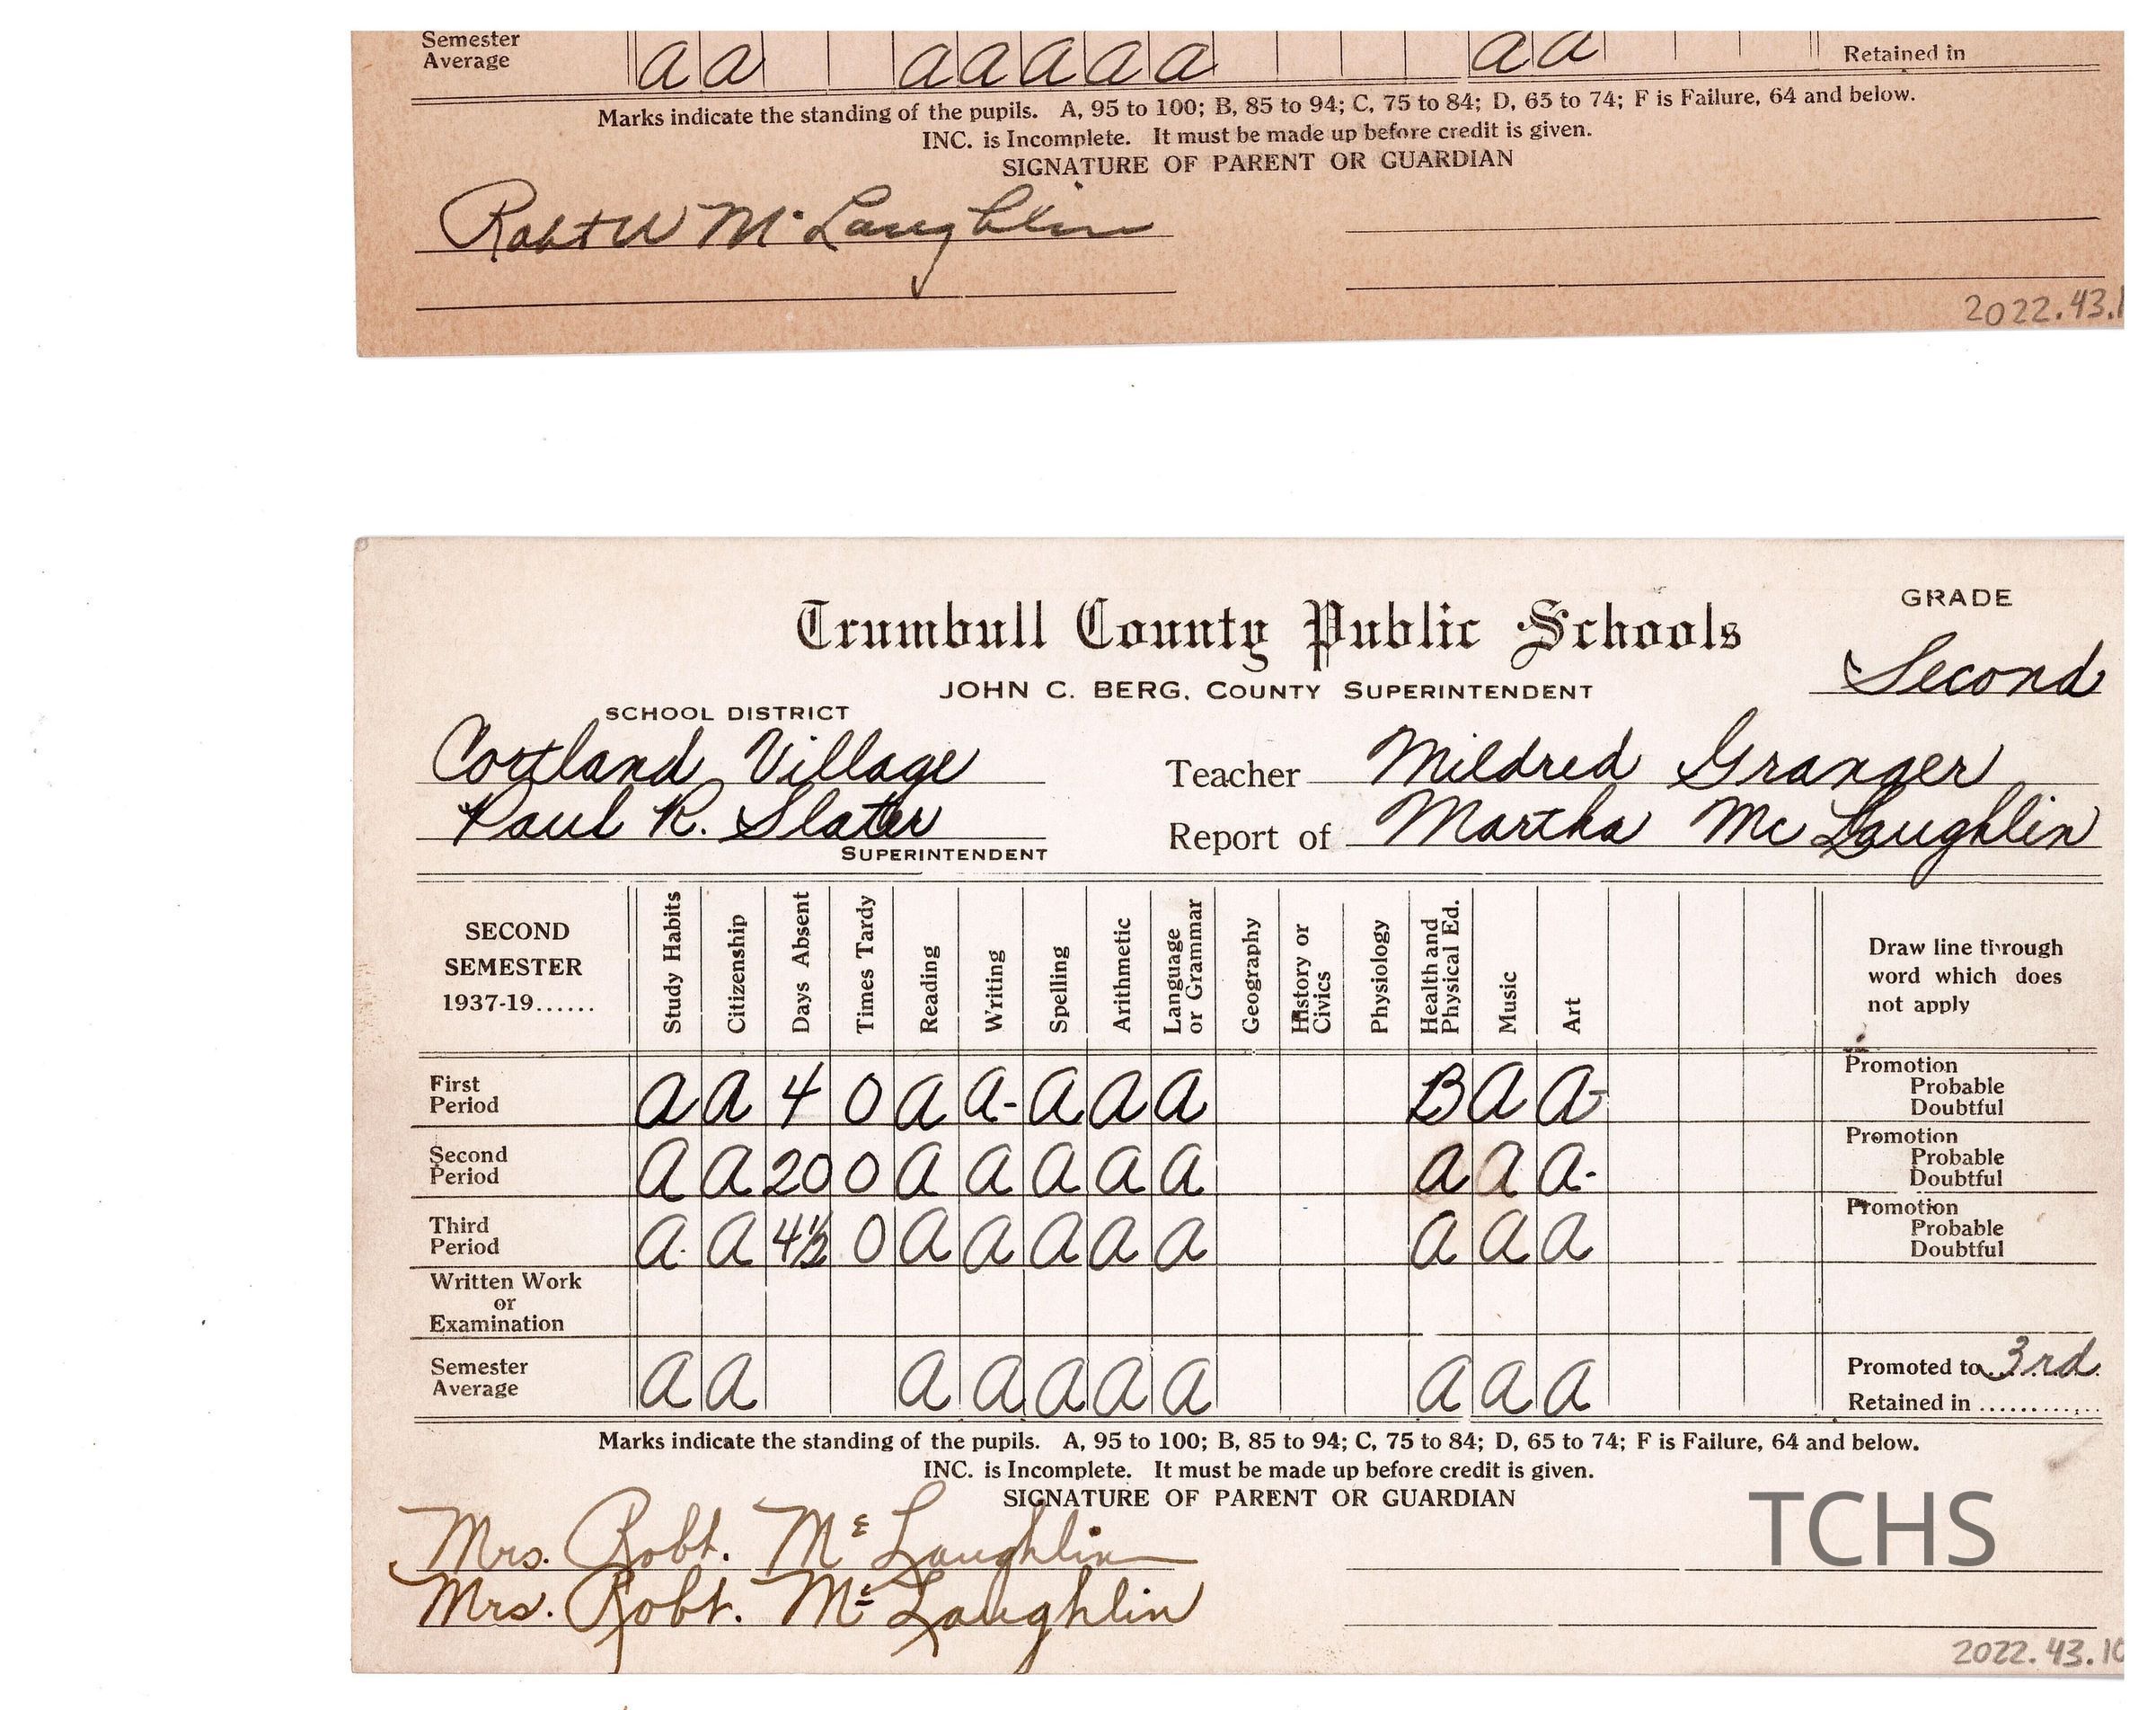 Semester
Average a a a a a a a a a Retained in
Marks indicate the standing of the pupils. A, 95 to 100; B, 85 to 94; C, 75 to 84; D, 65 to 74; F is Failure, 64 and below.
INC. is Incomplete. It must be made up before credit is given.
SIGNATURE OF PARENT OR GUARDIAN
Robt W Mc Laughlin
2022.43.1
GRADE
Trumbull County Public Schools
Second
JOHN C. BERG, COUNTY SUPERINTENDENT
SCHOOL DISTRICT
Cortland Village Teacher Mildred Granger
Paul R. Slater Report of Martha Mc Laughlin
SUPERINTENDENT
SECOND
SEMESTER
1937-19......
Study Habits
Citizenship
Days Absent
Times Tardy
Reading
Writing
Spelling
Arithmetic
Language
or Grammar
Geography
History or
Civics
Physiology
Health and
Physical Ed.
Music
Art
Draw line through
word which does
not apply
First
Period a a 4 0 a a- a a a B a a-
Promotion
Probable
Doubtful
Second
Period a a 20 0 a a a a a a a a-
Promotion
Probable
Doubtful
Third
Period a. a 4½ 0 a a a a a a a a
Promotion
Probable
Doubtful
Written Work
or
Examination
Semester
Average a a a a a a a a a a
Promoted to 3rd.
Retained in ............
Marks indicate the standing of the pupils. A, 95 to 100; B, 85 to 94; C, 75 to 84; D, 65 to 74; F is Failure, 64 and below.
INC. is Incomplete. It must be made up before credit is given.
SIGNATURE OF PARENT OR GUARDIAN
Mrs. Robt. Mc Laughlin
Mrs. Robt. Mc Laughlin
TCHS
2022.43.10